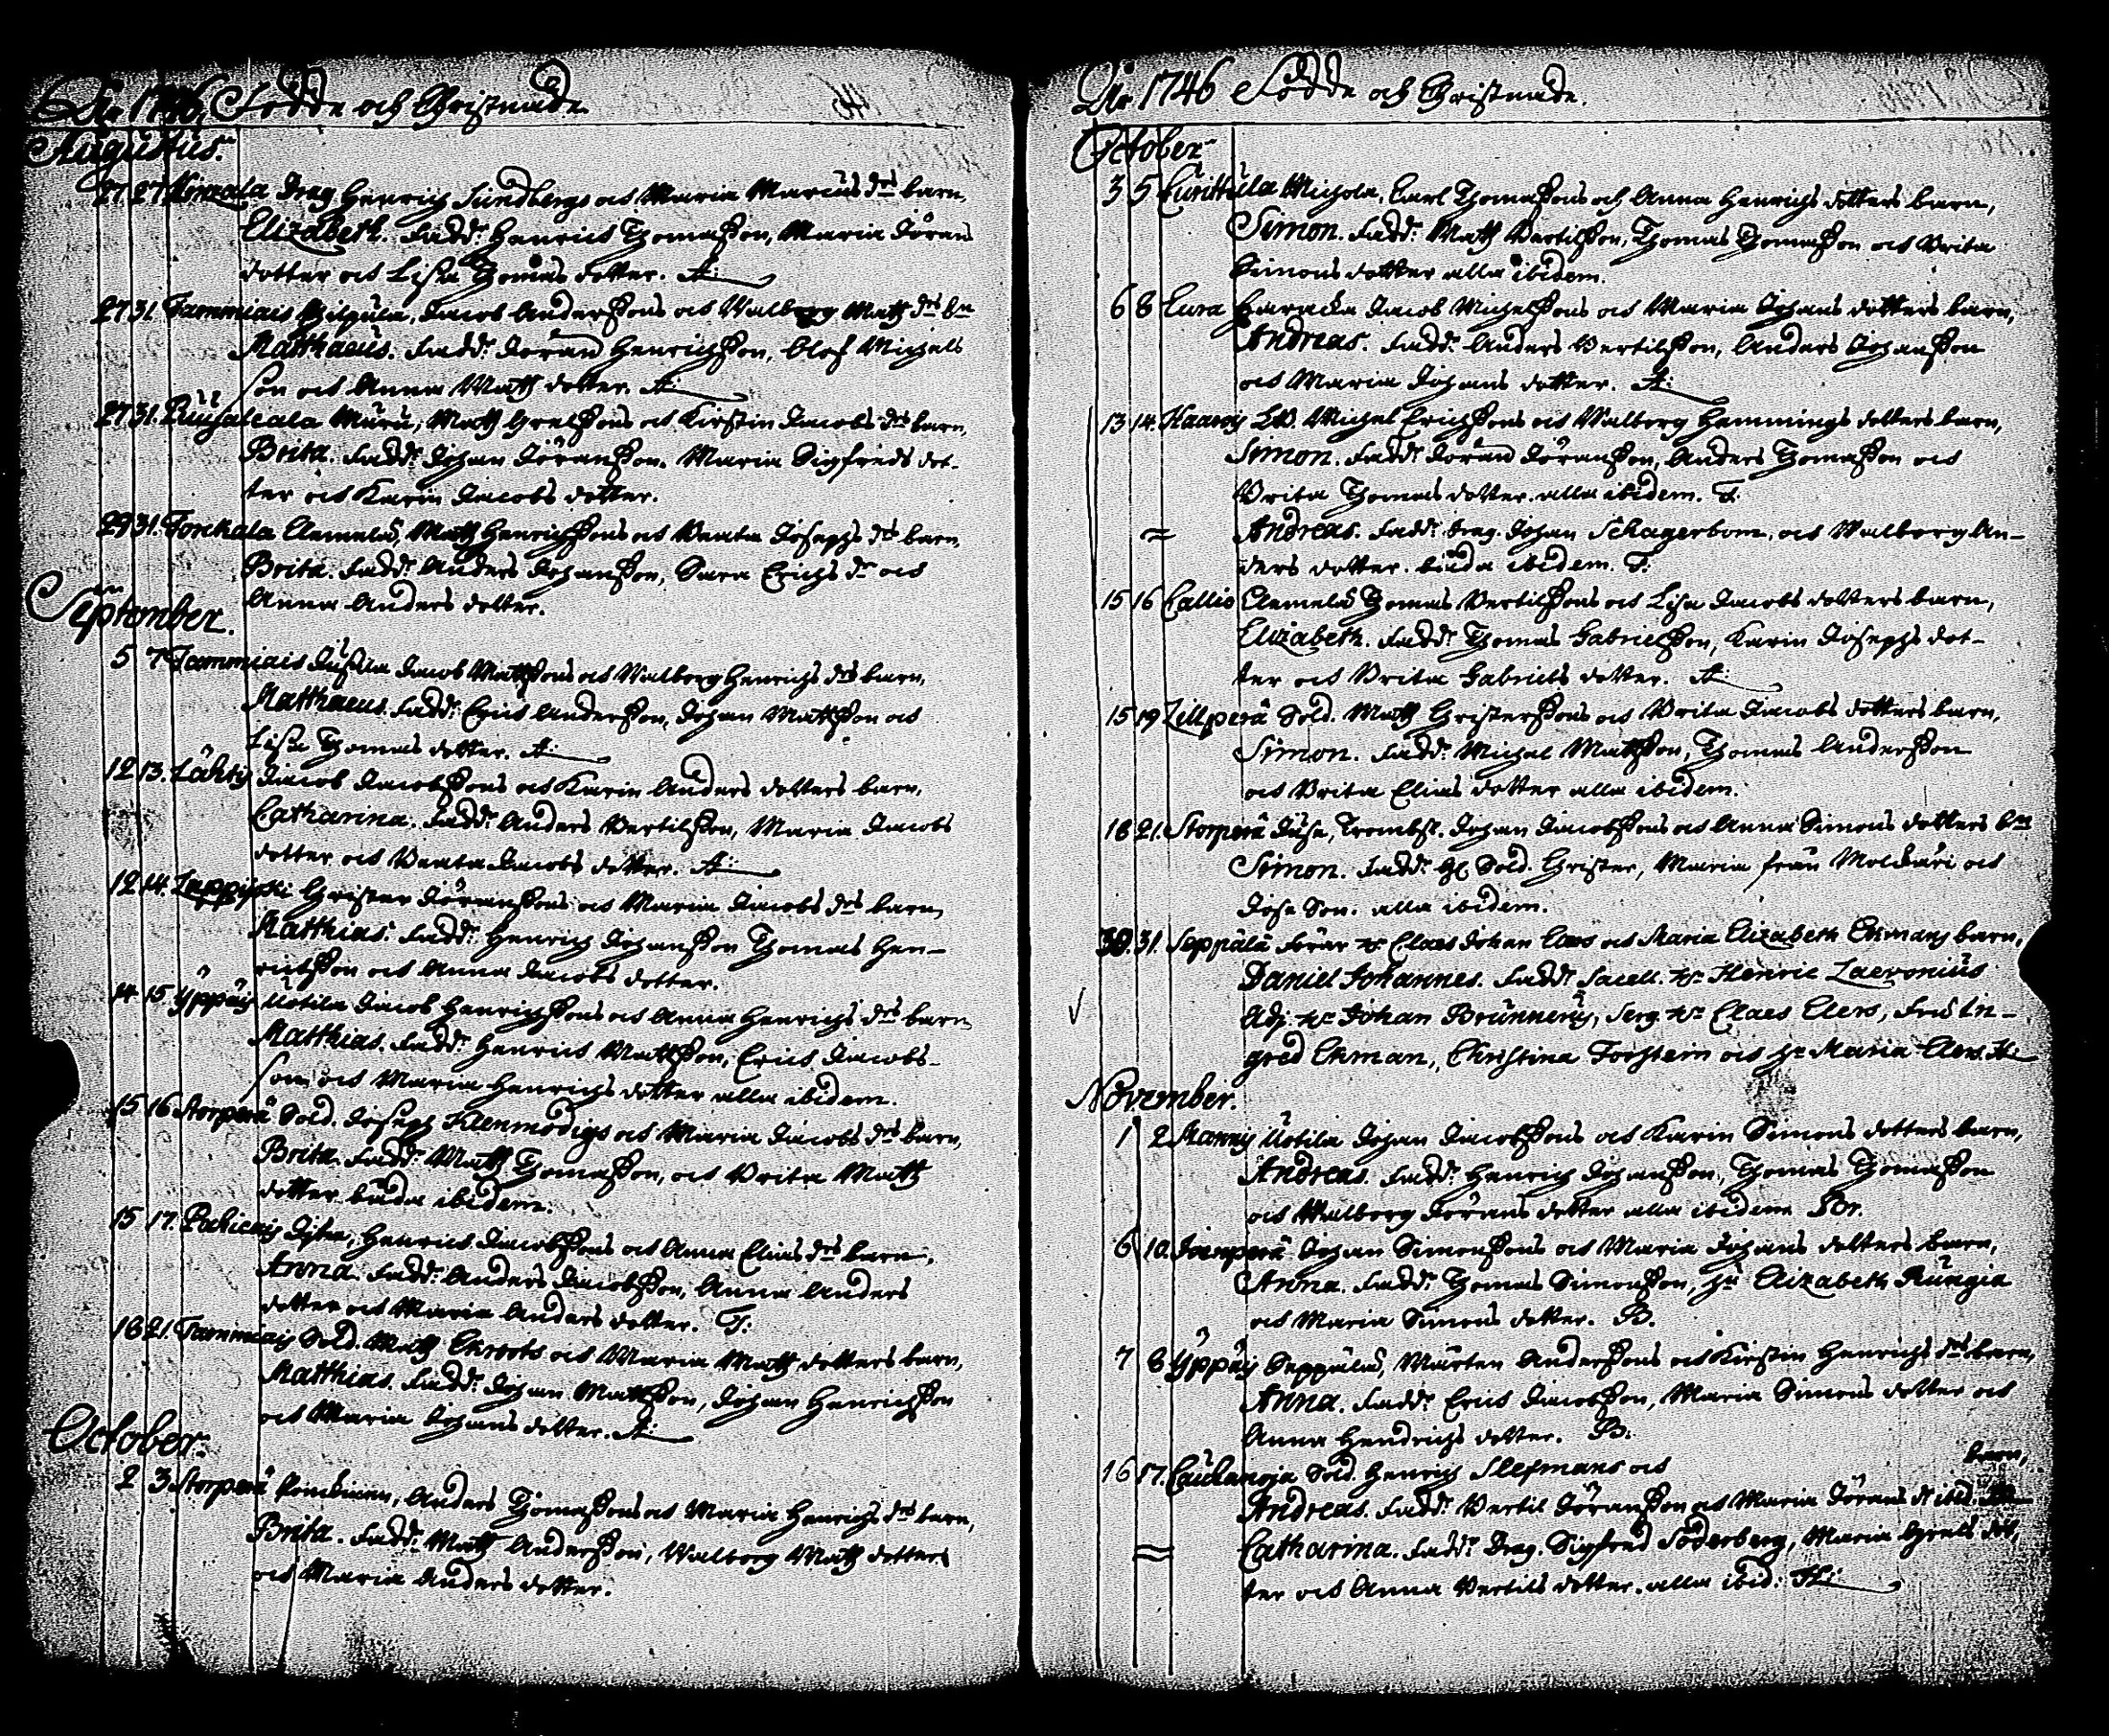 Åhr 1746, Födde och Christnade
Augustus.
27 27 Drag. Henrich Sundbergs och Maria Marcus drs barn,
Elizabeth. Fadd: Henrich Thomasson, Maria Jörans
dotter och Lisa Thomas dotter. A:
27 31. Tammiais Jacob Anderssons och Walborg Matts drs bn
Matthaeus. Fadd: Jöran Henrichsson, Olof Michels
son och Anna Matts dotter. A:
27 31. Muru, Matts Grelssons och Kirstin Jacobs drs barn,
Brita. Fadd: Johan Jöransson, Maria Sigfreds dot-
ter och Karin Jacobs dotter.
29 31. Torckala Clemelä, Matts Henrichssons och Beata Josephs drs barn,
Brita. Fadd: Anders Johansson, Sara Erichs dr och
Anna Anders dotter.
September.
5 7 Tammiais Jacob Mattssons och Walborg Henrichs drs barn,
Matthaeus. Fadd: Eric Andersson, Johan Mattsson och
Lisa Thomas dotter. A:
12 13. Lähtis Jacob Jacobssons och Karin Anders dotters barn,
Catharina. Fadd: Anders Bertilsson, Maria Jacobs
dotter och Beata Jacobs dotter. A:
12 14. Christer Jöranssons och Maria Jacobs drs barn,
Matthias. Fadd: Henrich Johansson Thomas Hen-
richsson och Anna Jacobs dotter.
14 15 Yppäis Uotila Jacob Henrichssons och Anna Henrichs drs barn
Matthias. Fadd: Henrich Mattsson, Eric Jacobs-
son, och Maria Henrichs dotter alla ibidem.
15 16 Storperä Sold. Joseph Klenmodigs och Maria Jacobs drs barn,
Brita. Fadd: Matts Thomasson, och Brita Matts
dotter båda ibidem.
15 17. Henrich Jacobssons och Anna Elias drs barn,
Anna. Fadd: Anders Jacobsson, Anna Anders
dotter och Maria Anders dotter. T:
18 21. Tammiais Sold. Matts Ekroots och Maria Matts dotters barn,
Matthias. Fadd: Johan Mattsson, Johan Henrichsson
och Maria Johans dotter. A:
October.
2 3 Storperä Anders Thomassons och Maria Henrichs drs barn,
Brita. Fadd: Matts Andersson, Walborg Matts dotters
och Maria Anders dotter.
Åhr 1746 Födde och Christnade.
October
3 5 Michola, Carl Thomassons och Anna Henrichs dotters barn,
Simon. Fadd: Matts Bertilsson, Thomas Thomasson och Brita
Simons dotter alla ibidem.
6 8 Eura Jacob Michelssons och Maria Johans dotters barn,
Andreas. Fadd: Anders Bertilsson, Anders Johansson
och Maria Johans dotter. A:
13 14. Michel Erichssons och Walborg Hemmings dotters barn,
Simon. Fadd: Jöran Jöransson, Anders Thomasson och
Brita Thomas dotter alla ibidem. T:
= Andreas. Fadd: Drag. Johan Schagerbom, och Walborg An-
ders dotter. båda ibidem. T:
15 16 Callio Clemelä Thomas Bertilssons och Lisa Jacobs dotters barn,
Elizabeth. Fadd: Thomas Gabrielsson, Karin Josephs dot-
ter och Brita Gabriels dotter. A:
15 19 Zellperä Sold. Matts Christerssons och Brita Jacobs dotters barn,
Simon. Fadd: Michel Mattsson, Thomas Andersson
och Brita Elias dotter alla ibidem.
18 21. Storperä Johan Jacobssons och Anna Simons dotters bn
Simon. Fadd: Sold. Christer, Maria från och
alla ibidem.
30. 31. Seppälä Claes Johan och Maria Elizabeth Ekmans barn,
Daniel Johannes. Fadd: Sacell. Hr Henric Laevonius
Adj. Hr Johan Brunnerus, Serg. Hr Claes Elers, In-
gred Ekman, Christina Forstein och Maria Elers. H:
November.
1 2 Mannis Uotila Johan Jacobssons och Karin Simons dotters barn,
Andreas. Fadd: Henrich Johansson, Thomas Thomasson
och Walborg Jörans dotter alla ibidem Br.
6 10 Johan Simonssons och Maria Johans dotters barn,
Anna. Fadd: Thomas Simonsson, Elizabeth
och Maria Simons dotter. B.
7 8 Yppäis Seppälä, Mårten Anderssons och Kirstin Henrichs drs barn,
Anna. Fadd: Eric Jacobsson, Maria Simons dotter och
Anna Hendrichs dotter. B:
16 17. Caukanoja Sold. Henrich och barn,
Andreas. Fadd: Bertil Jöransson och Maria Jörans dr ibid.
= Catharina. Fadd: Drag. Sigfred Söderberg, Maria Grels dot,
ter och Anna Bertils dotter. alla ibid: H: